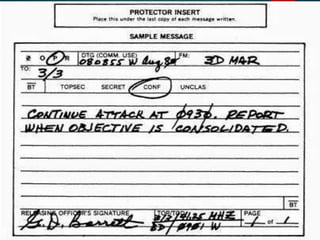 PROTECTOR INSERT
Place this under the last copy of each message written.
SAMPLE MESSAGE
Z O P R DTG (COMM. USE) 080855 W Aug 84 FM: 3D MAR
TO: 3/3
BT TOPSEC SECRET CONF UNCLAS
CONTINUE ATTACK AT 0930. REPORT
WHEN OBJECTIVE IS CONSOLIDATED.
BT
RELEASING OFFICER'S SIGNATURE PAGE
G. D. Barrett MHZ 1 of 1
0901 W